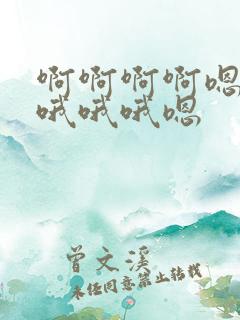 啊啊啊啊嗯
哦哦哦嗯
曾文溪
未经同意禁止转载